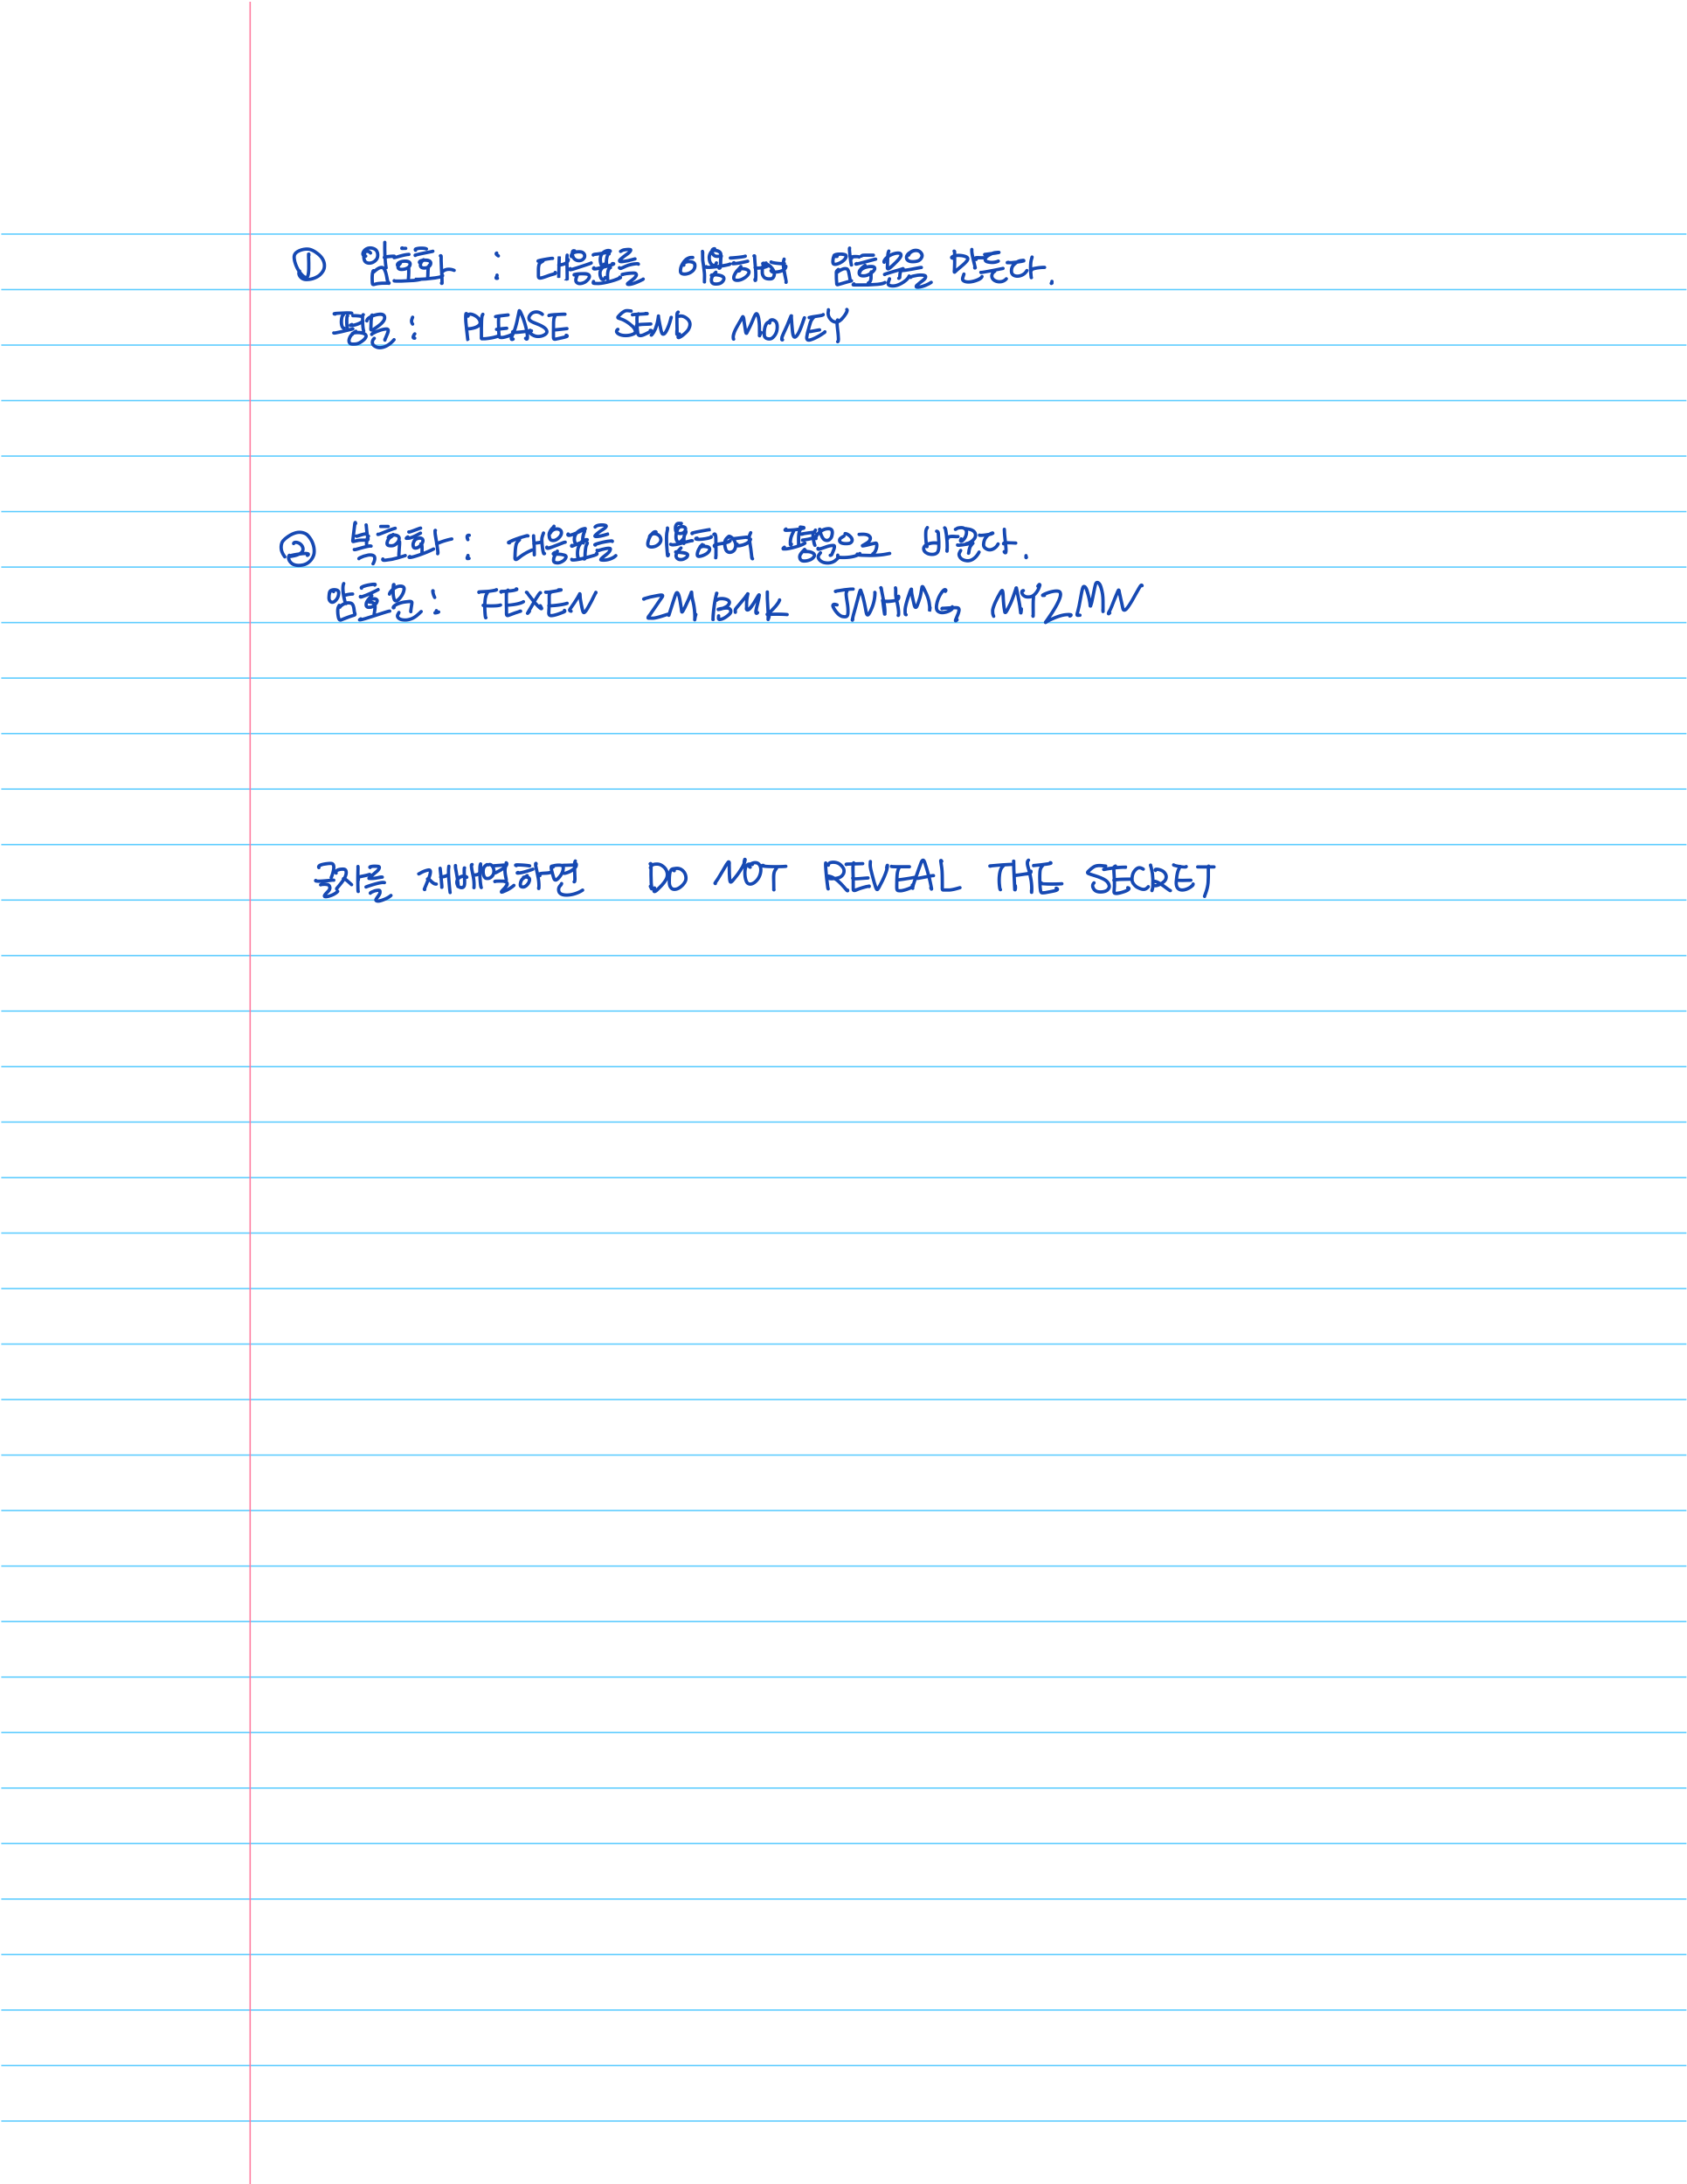 ① 암호화 : 대응표를 이용하여 암호문을 만든다.
평문: PLEASE SEND MONEY
② 복호화: 대응표를 이용하여 평문으로 변환한다.
암호문: FEXEV ZMBMK JNHMG MYZMN
결과를 재배열하면 DO NOT REVEAL THE SECRET